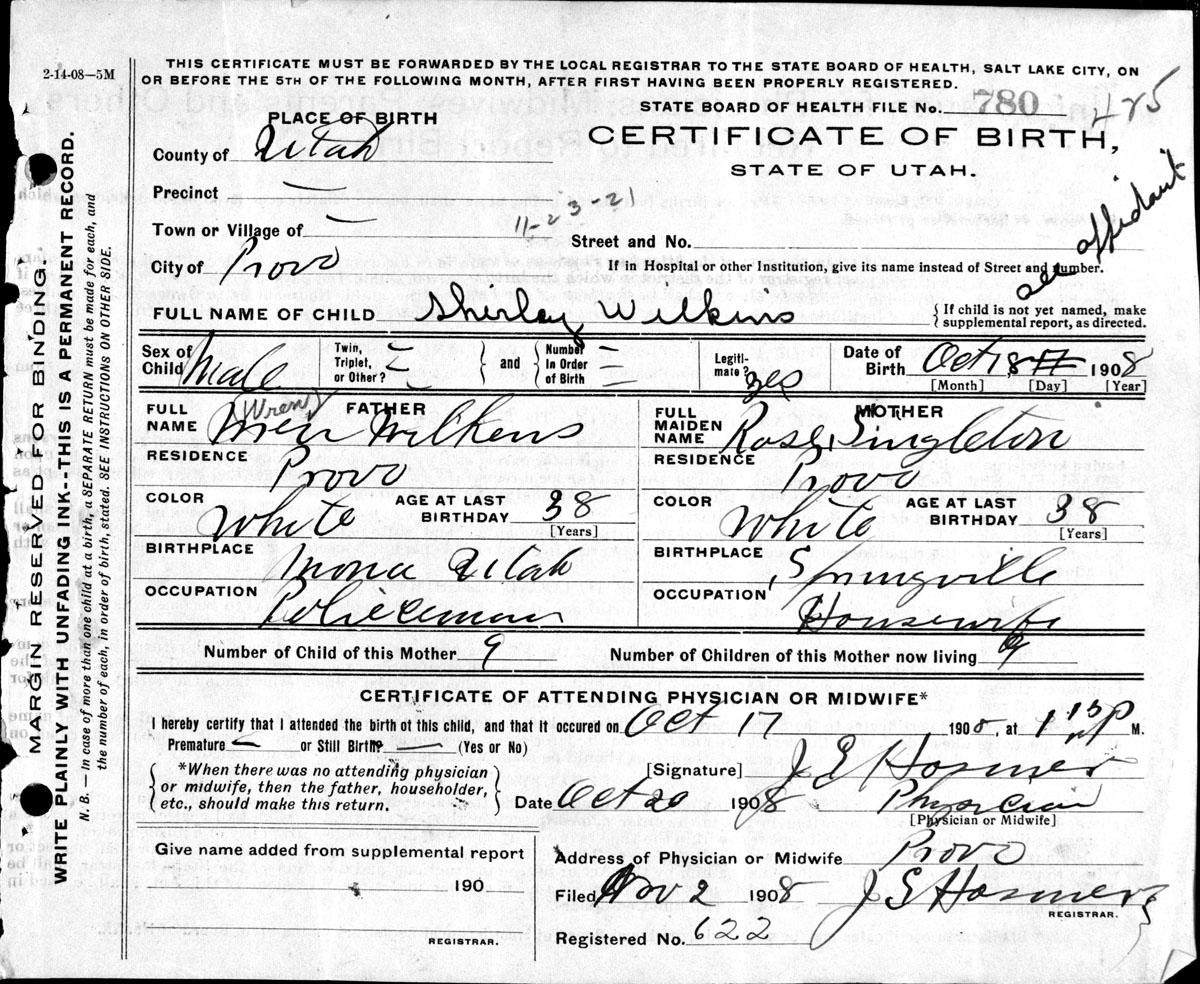 2-14-08—5M
THIS CERTIFICATE MUST BE FORWARDED BY THE LOCAL REGISTRAR TO THE STATE BOARD OF HEALTH, SALT LAKE CITY, ON
OR BEFORE THE 5TH OF THE FOLLOWING MONTH, AFTER FIRST HAVING BEEN PROPERLY REGISTERED.
STATE BOARD OF HEALTH FILE No. 780 425
PLACE OF BIRTH
CERTIFICATE OF BIRTH,
STATE OF UTAH.
County of Utah
Precinct —
Town or Village of —
11-23-21
Street and No.
City of Provo
If in Hospital or other Institution, give its name instead of Street and number.
see affidavit
FULL NAME OF CHILD Shirley Wilkins
{ If child is not yet named, make
supplemental report, as directed.
Sex of Child Male
Twin, Triplet, or Other? —
} and {
Number In Order of Birth —
Legiti-mate? yes
Date of Birth Oct 18 17 1908
[Month] [Day] (Year)
FATHER
FULL NAME Wren Wilkens
(Wren)
RESIDENCE Provo
COLOR White
AGE AT LAST BIRTHDAY 38
[Years]
BIRTHPLACE Mona Utah
OCCUPATION Policeman
MOTHER
FULL MAIDEN NAME Rose Singleton
RESIDENCE Provo
COLOR White
AGE AT LAST BIRTHDAY 38
[Years]
BIRTHPLACE Springville
OCCUPATION Housewife
Number of Child of this Mother 9
Number of Children of this Mother now living 9
CERTIFICATE OF ATTENDING PHYSICIAN OR MIDWIFE*
I hereby certify that I attended the birth of this child, and that it occured on Oct 17 1908, at 1 P M.
Premature — or Still Birth? — (Yes or No)
{ *When there was no attending physician
or midwife, then the father, householder,
etc., should make this return. }
[Signature] J E Hosmer
Date Oct 20 1908 Physician
[Physician or Midwife]
Give name added from supplemental report
190
REGISTRAR.
Address of Physician or Midwife Provo
Filed Nov 2 1908 J E Hosmer
REGISTRAR.
Registered No. 622
MARGIN RESERVED FOR BINDING.
WRITE PLAINLY WITH UNFADING INK--THIS IS A PERMANENT RECORD.
N. B. — In case of more than one child at a birth, a SEPARATE RETURN must be made for each, and
the number of each, in order of birth, stated. SEE INSTRUCTIONS ON OTHER SIDE.